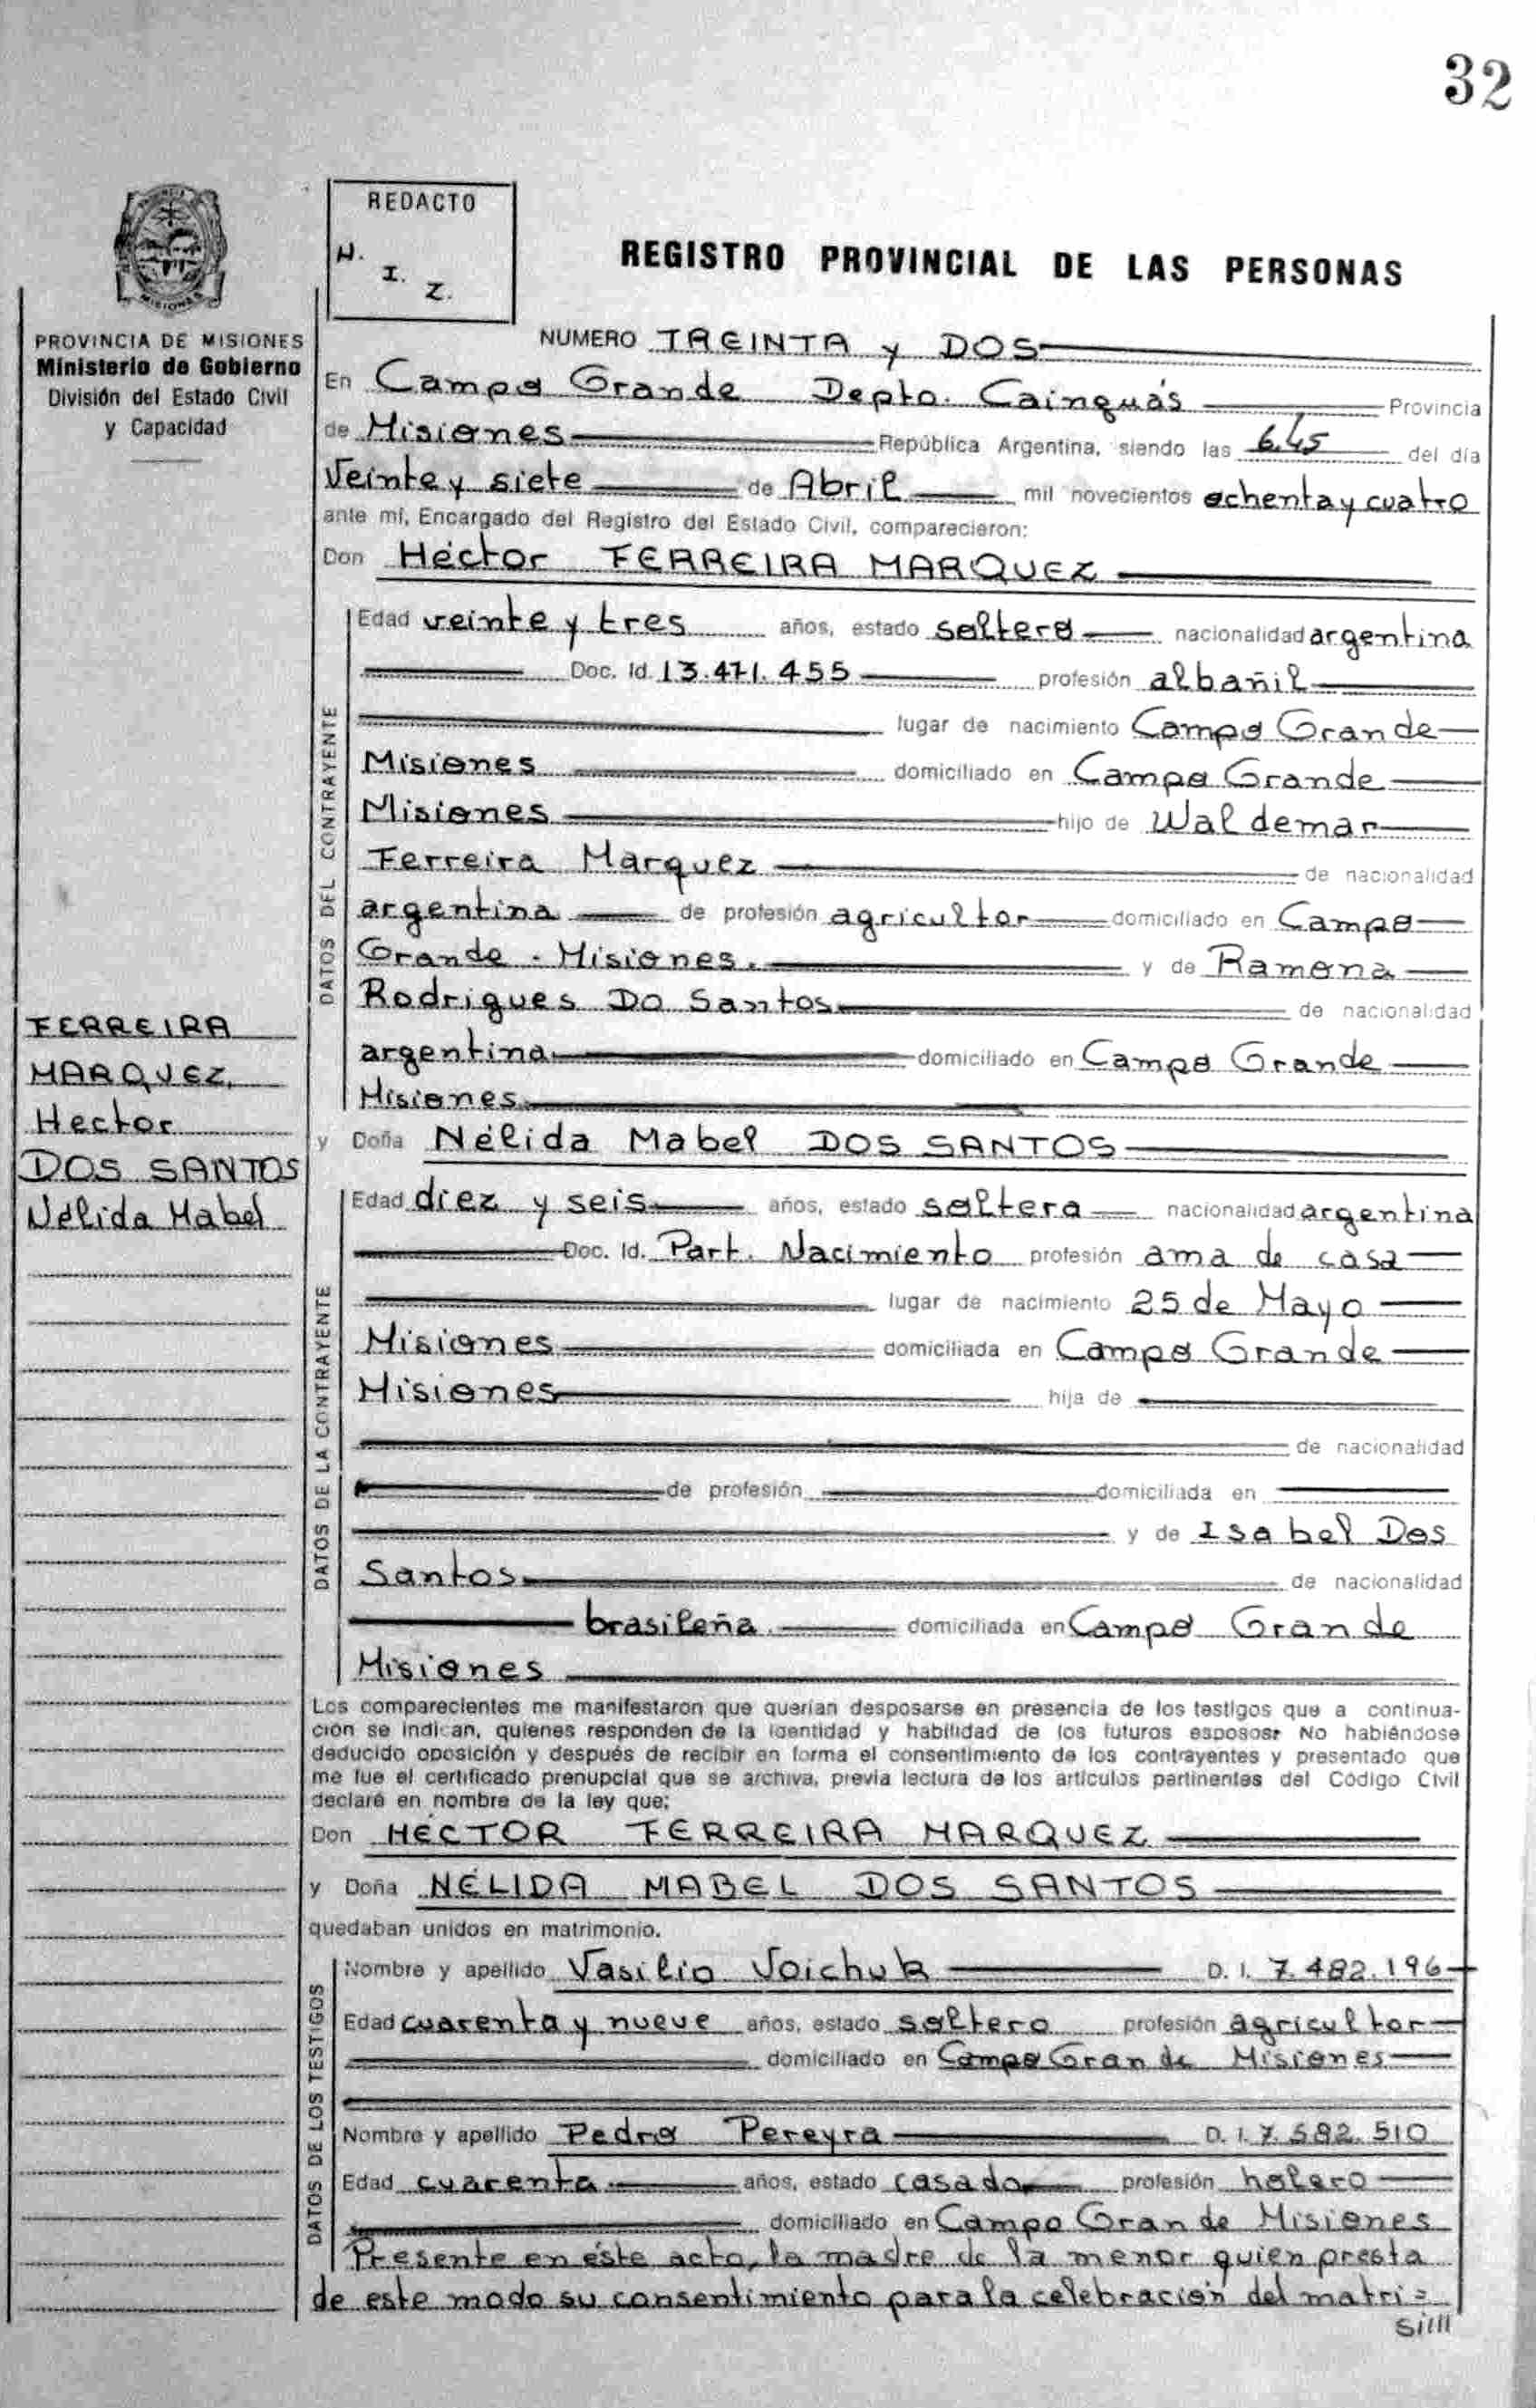 32
REDACTO
H.
I.
Z.
REGISTRO PROVINCIAL DE LAS PERSONAS
PROVINCIA DE MISIONES
Ministerio de Gobierno
División del Estado Civil
y Capacidad
NUMERO TREINTA y DOS
En Campo Grande Depto. Cainguás Provincia
de Misiones República Argentina, siendo las 6.45 del día
Veinte y siete de Abril mil novecientos ochenta y cuatro
ante mí, Encargado del Registro del Estado Civil, comparecieron:
Don Héctor FERREIRA MARQUEZ
DATOS DEL CONTRAYENTE
Edad veinte y tres años, estado soltero nacionalidad argentina
Doc. Id. 13.471.455 profesión albañil
lugar de nacimiento Campo Grande
Misiones domiciliado en Campo Grande
Misiones hijo de Waldemar
Ferreira Marquez de nacionalidad
argentina de profesión agricultor domiciliado en Campo
Grande - Misiones. y de Ramona
Rodrigues Do Santos de nacionalidad
argentina domiciliado en Campo Grande
Misiones
FERREIRA
MARQUEZ
Hector
DOS SANTOS
Nélida Mabel
y Doña Nélida Mabel DOS SANTOS
DATOS DE LA CONTRAYENTE
Edad diez y seis años, estado soltera nacionalidad argentina
Doc. Id. Part. Nacimiento profesión ama de casa
lugar de nacimiento 25 de Mayo
Misiones domiciliada en Campo Grande
Misiones hija de
de nacionalidad
de profesión domiciliada en
y de Isabel Dos
Santos de nacionalidad
brasileña domiciliada en Campo Grande
Misiones
Los comparecientes me manifestaron que querían desposarse en presencia de los testigos que a continua-
ción se indican, quienes responden de la identidad y habilidad de los futuros esposos: No habiéndose
deducido oposición y después de recibir en forma el consentimiento de los contrayentes y presentado que
me fue el certificado prenupcial que se archiva, previa lectura de los artículos pertinentes del Código Civil
declaré en nombre de la ley que:
Don HÉCTOR FERREIRA MARQUEZ
y Doña NÉLIDA MABEL DOS SANTOS
quedaban unidos en matrimonio.
DATOS DE LOS TESTIGOS
Nombre y apellido Vasilio Voichuk D. I. 7.482.196
Edad cuarenta y nueve años, estado soltero profesión agricultor
domiciliado en Campo Grande Misiones
Nombre y apellido Pedro Pereyra D. I. 7.582.510
Edad cuarenta años, estado casado profesión
domiciliado en Campo Grande Misiones
Presente en éste acto, la madre de la menor quien presta
de este modo su consentimiento para la celebración del matri=